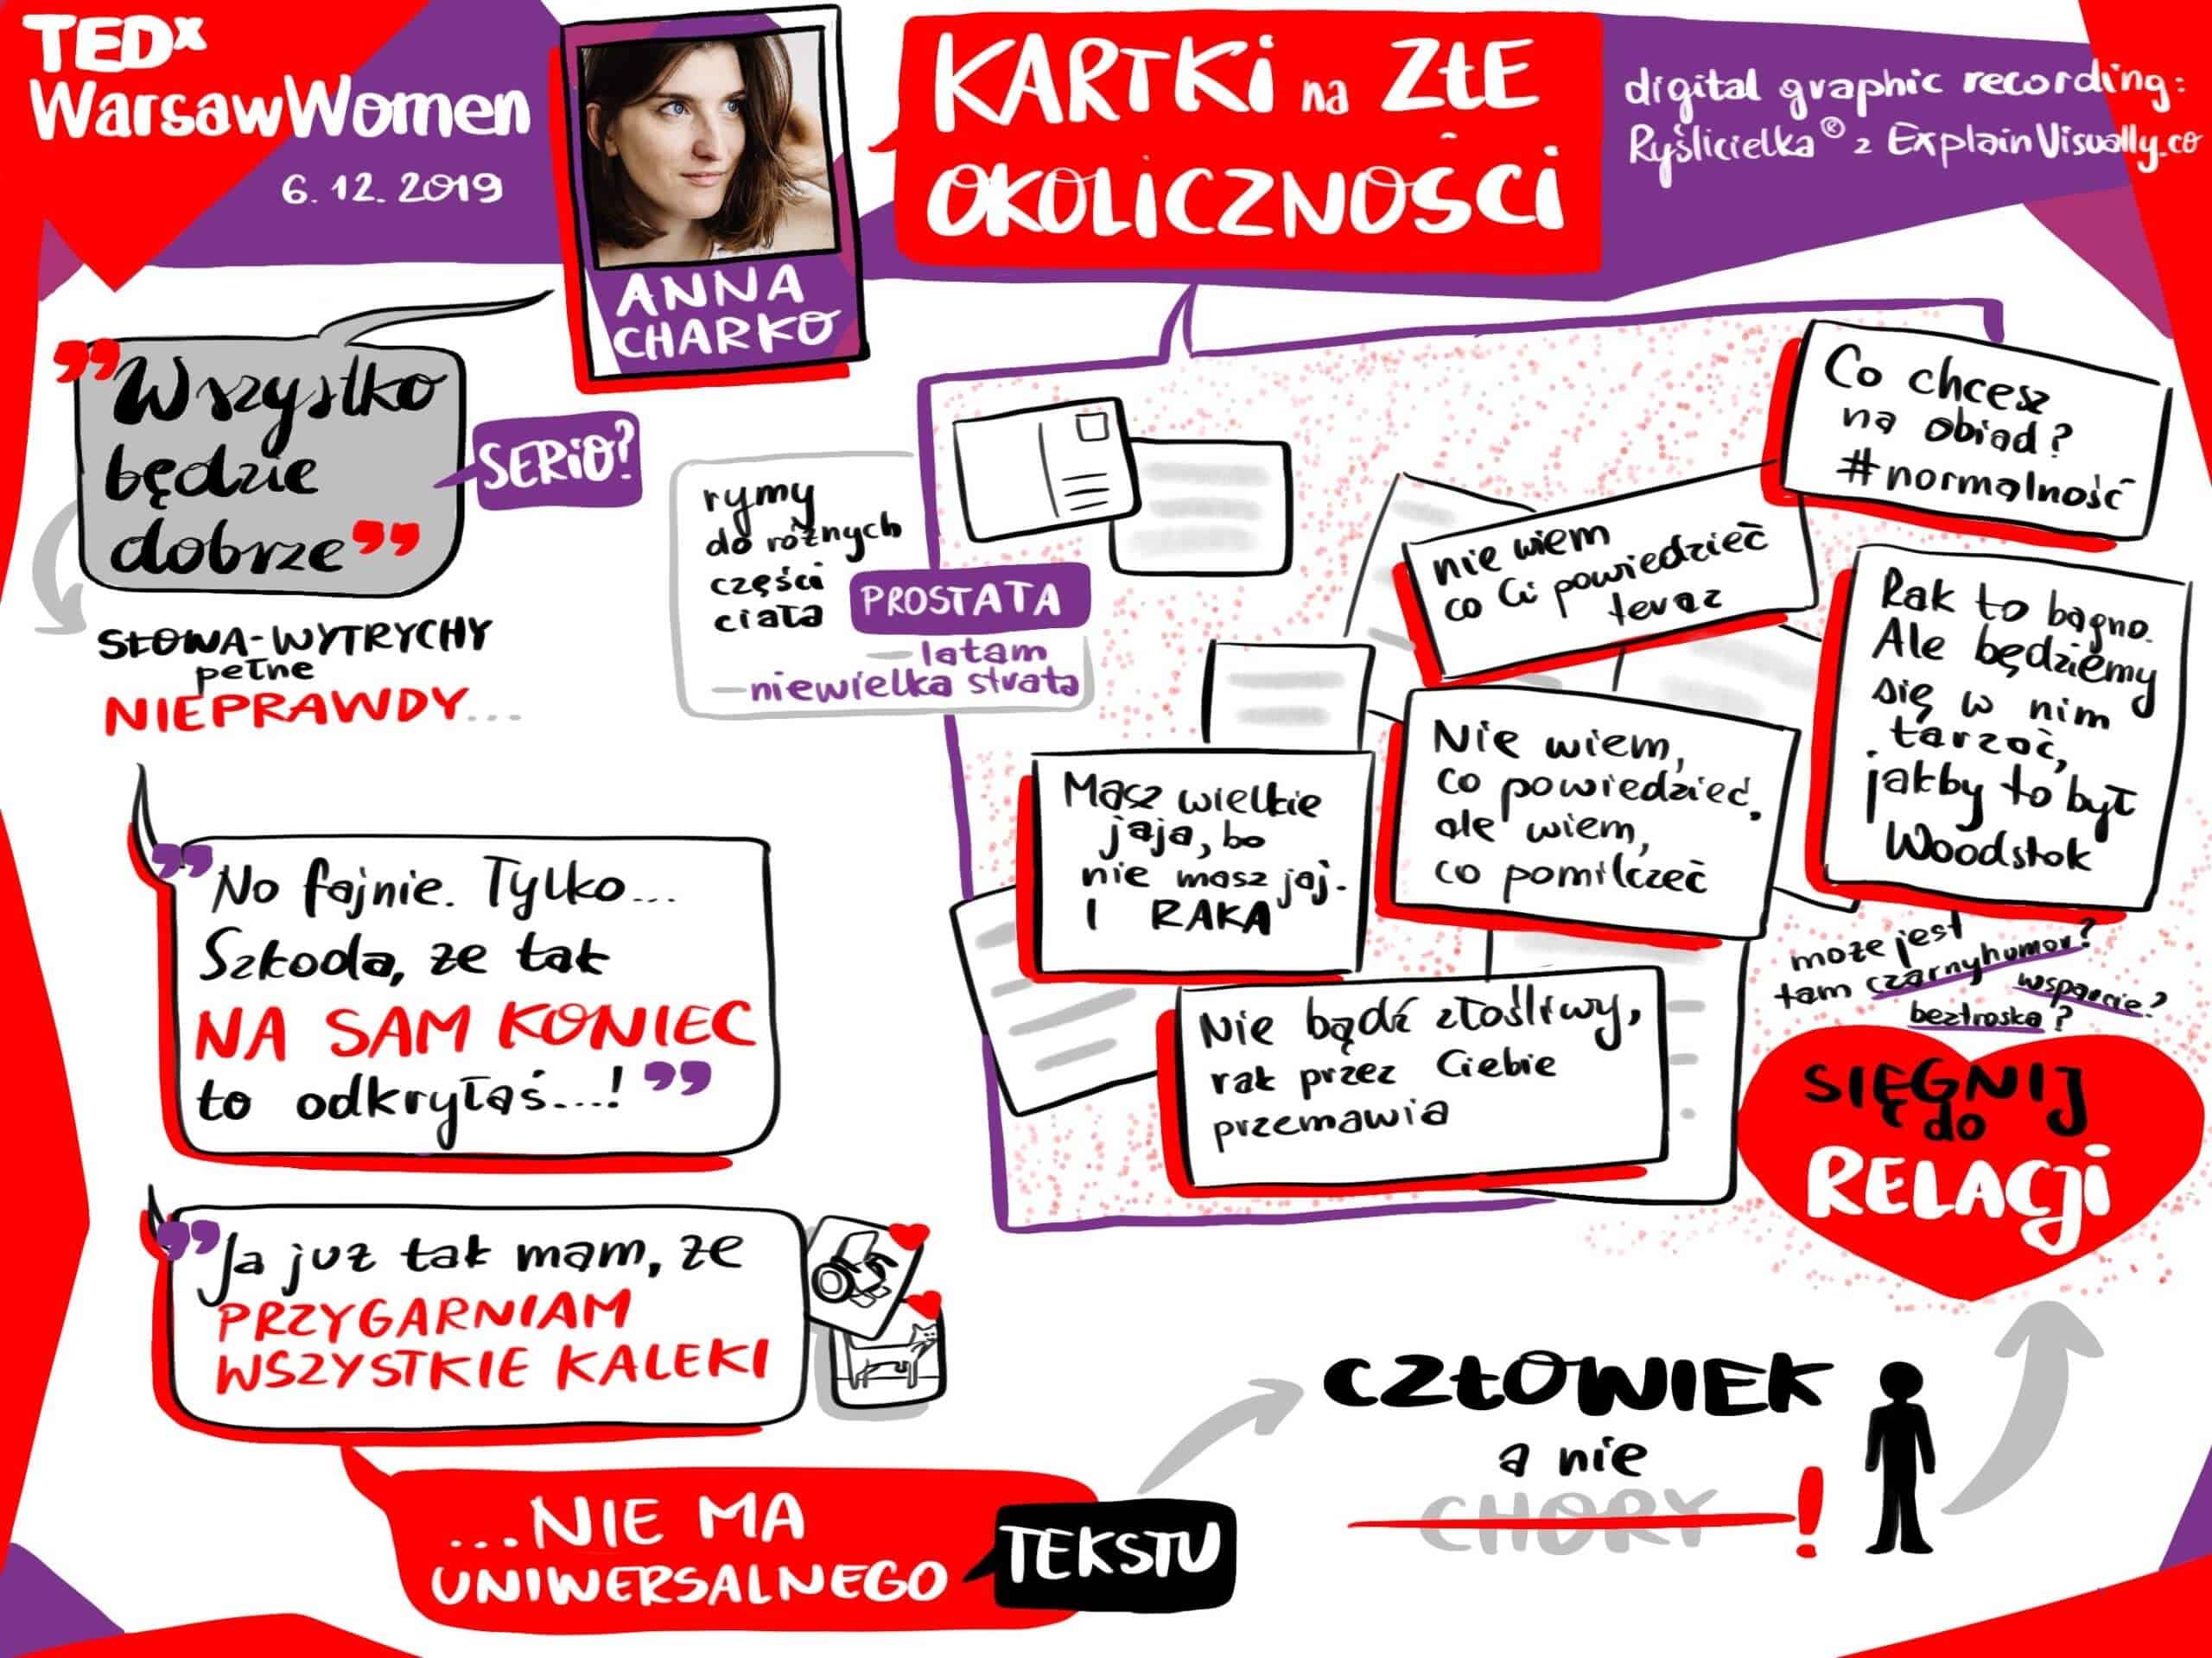 TEDx
WarsawWomen
6. 12. 2019
ANNA
CHARKO
KARTKI na ZŁE
OKOLICZNOŚCI
digital graphic recording:
Ryślicielka® z ExplainVisually.co
"Wszystko
będzie
dobrze"
SERIO?
SŁOWA-WYTRYCHY
pełne
NIEPRAWDY...
rymy
do różnych
części
ciała
PROSTATA
- latam
- niewielka strata
"No fajnie. Tylko...
Szkoda, że tak
NA SAM KONIEC
to odkryłaś...!"
"Ja już tak mam, że
PRZYGARNIAM
WSZYSTKIE KALEKI
...NIE MA
UNIWERSALNEGO
TEKSTU
Co chcesz
na obiad?
#normalność
nie wiem
co Ci powiedzieć
teraz
Rak to bagno.
Ale będziemy
się w nim
tarzać,
jakby to był
Woodstok
Masz wielkie
jaja, bo
nie masz jaj.
I RAKA
Nie wiem,
co powiedzieć,
ale wiem,
co pomilczeć
Nie bądź złośliwy,
rak przez Ciebie
przemawia
może jest
tam czarny humor?
wsparcie?
beztroska?
SIĘGNIJ
do
RELACJI
CZŁOWIEK
a nie
CHORY!